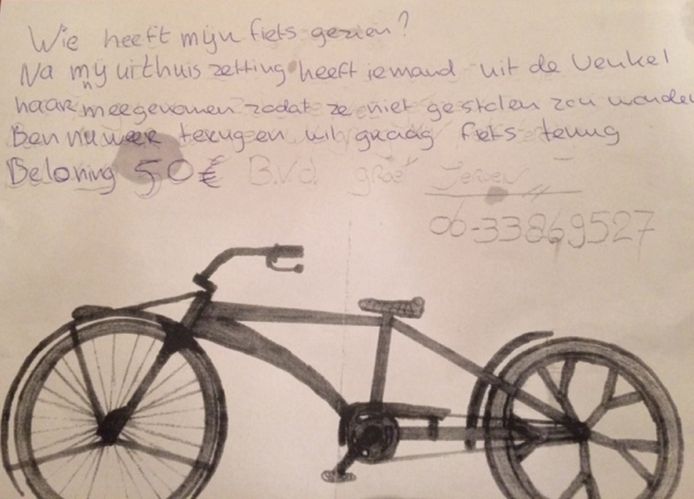 Wie heeft mijn fiets gezien?
Na mijn uithuiszetting heeft iemand uit de Venkel
haar meegenomen zodat ze niet gestolen zou worden
Ben nu weer terug en wil graag fiets terug
Beloning 50€ B.V.d. groet Jeroen
06-33869527